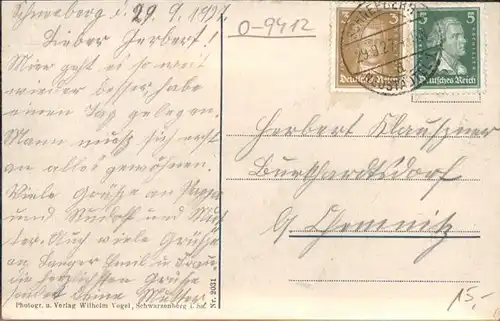 Schneeberg d. 29.9.1927.
Lieber Herbert!
Mir geht es so weit
wieder besser, habe
einen Tag gelegen.
Mann muß sich erst
an alles gewöhnen.
Viele Grüße an
und Rudolf und Mut
ter. Auch viele Grüße
an Emil u.
die herzlichsten Grüße
sendet Deine Mutter.
Photogr. u. Verlag Wilhelm Vogel, Schwarzenberg i. Sa.
Nr. 2031
O-9412
3 3
Deutsches Reich
5 5
Deutsches Reich
SCHNEEBERG
29.9.27
Herbert Klaussner
Burkhardtsdorf
b/ Chemnitz
15.-